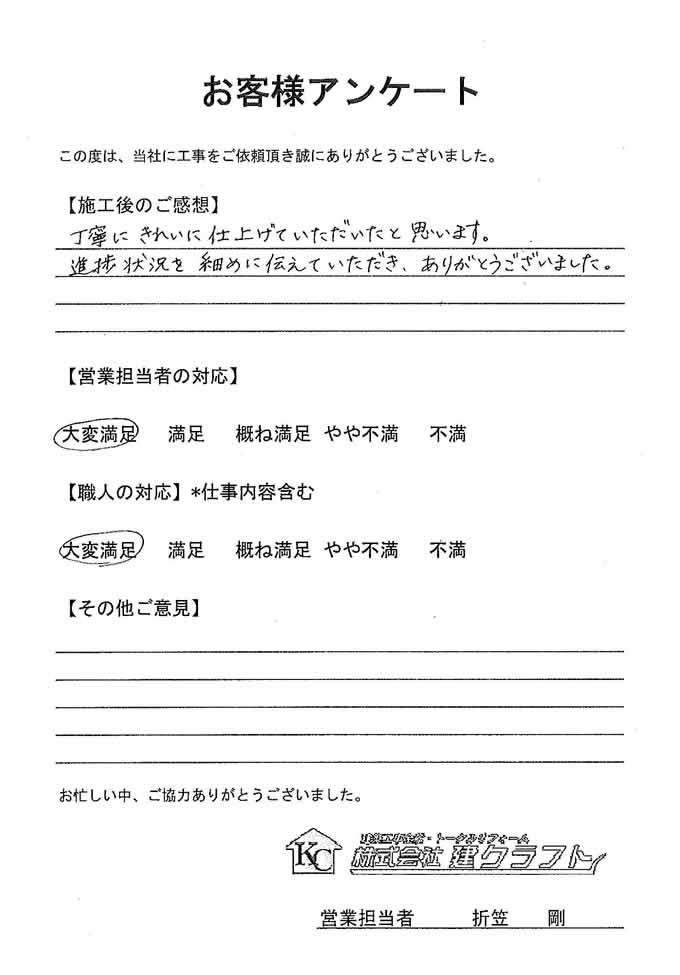 お客様アンケート
この度は、当社に工事をご依頼頂き誠にありがとうございました。
【施工後のご感想】
丁寧に きれいに 仕上げていただいたと思います。
進捗状況を細めに伝えていただき、ありがとうございました。
【営業担当者の対応】
大変満足 満足 概ね満足 やや不満 不満
【職人の対応】*仕事内容含む
大変満足 満足 概ね満足 やや不満 不満
【その他ご意見】
お忙しい中、ご協力ありがとうございました。
建築工事全般・トータルリフォーム
KC 株式会社 建クラフト
営業担当者 折笠 剛